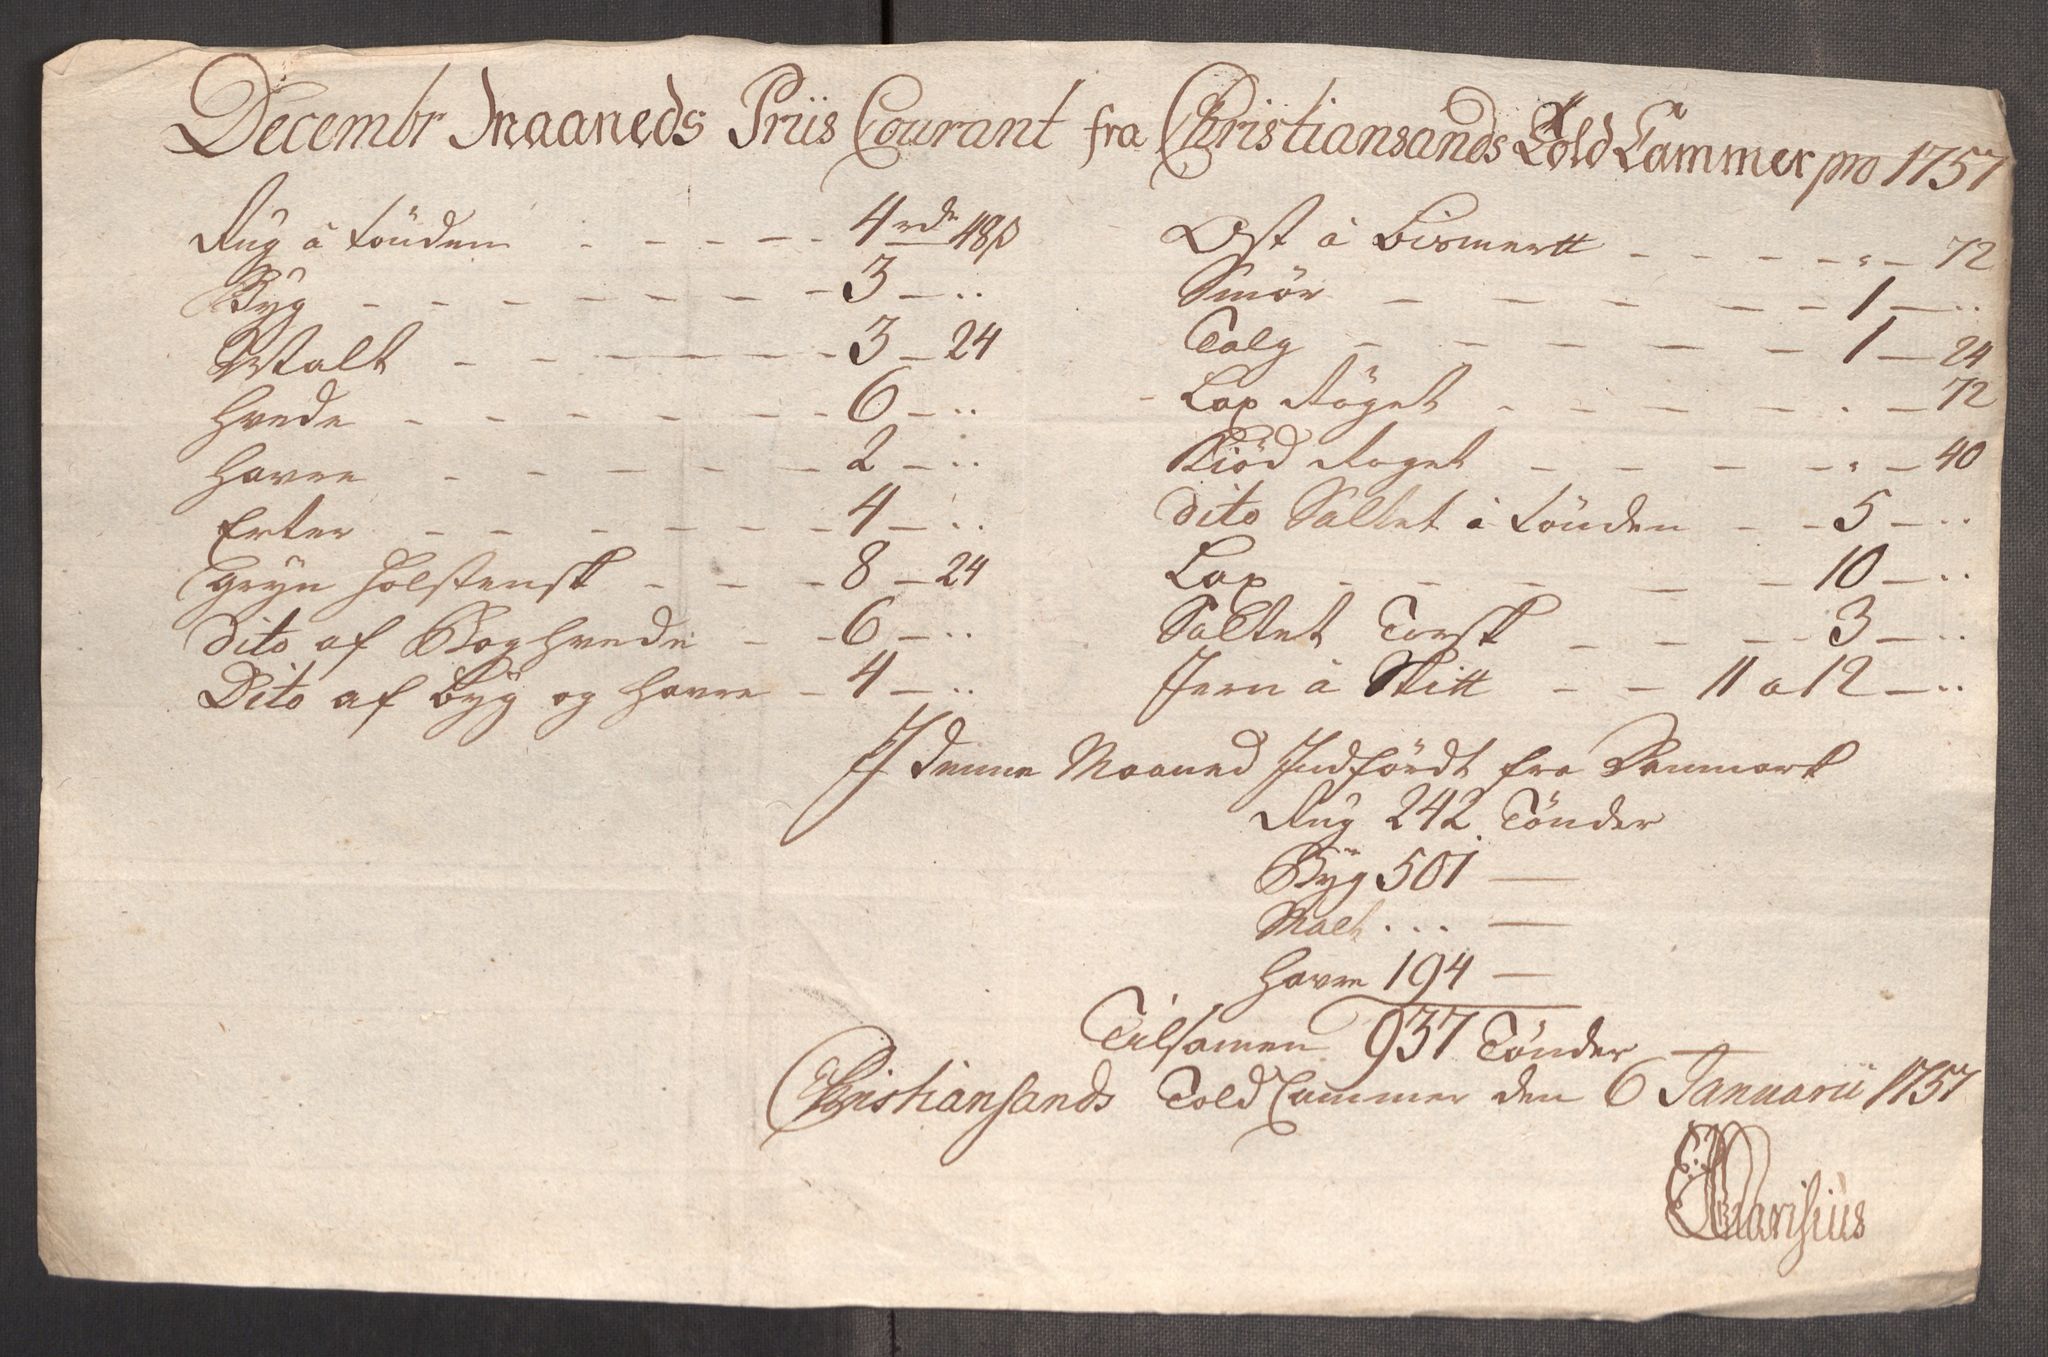 Decembr Maaneds Priis Courant fra Christiansands Told Cammer pro 1757
Rug â tönden - - - - - 4 rdr 48 β
Byg - - - - - - - - 3 - ..
Malt - - - - - - - 3 - 24
Hvede - - - - - - - 6 - ..
Havre - - - - - - - 2 - ..
Erter - - - - - - - 4 - ..
Gryn Holstensk - - - 8 - 24
Dito af Boghvede - - 6 - ..
Dito af Byg og Havre - 4 - ..
Ost â Bismertt - - - - - " - 72
Smör - - - - - - 1 - ..
Talg - - - - - - 1 - 24
Lax Röget - - - - - . - 72
Kiöd Röget - - - - " - 40
Dito Saltet â tönden - - 5 - ..
Lax - - - - - 10 - ..
Saltet Torsk - - - - 3 - ..
Jern â Skitt - - 11 a 12 - ..
I denne Maaned Indfördt fra Danmark
Rug 242. Tönder
Byg 501 —
Malt . . . —
Havre 194 —
Tilsamen 937 Tönder
Christiansands Told Cammer den 6 Januarii 1757